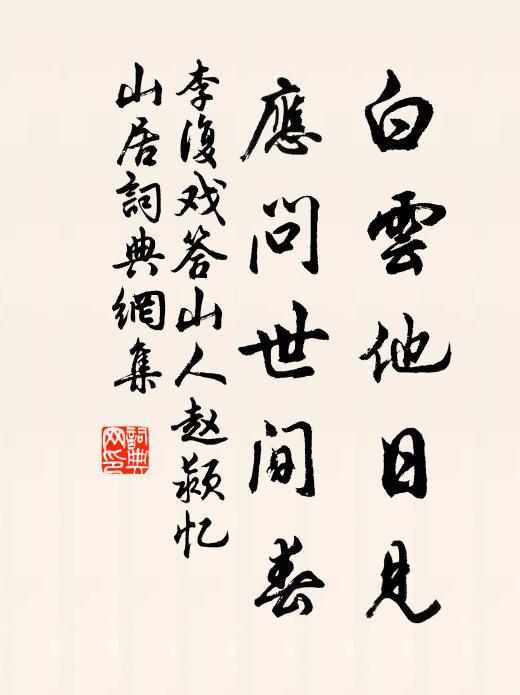 白雲他日見
應問世间春
李復戏答山人赵蘋忆
山居詞典網集
詞典
网印